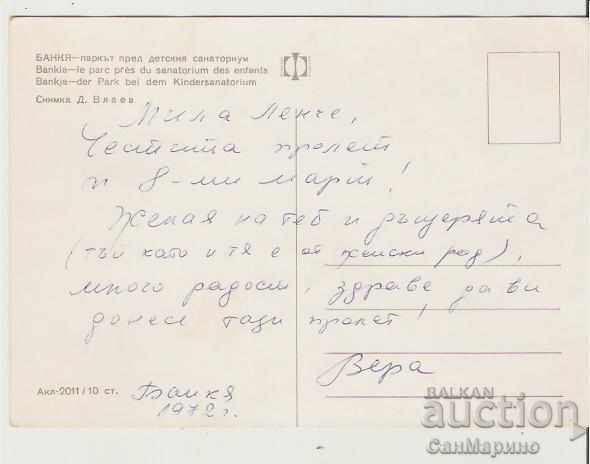 БАНКЯ—паркът пред детския санаториум
Bankia—le parc près du sanatorium des enfants
Bankja—der Park bei dem Kindersanatorium
Снимка Д. Влаев
Мила Ленче,
Честита пролет
и 8-ми март!
Желая на теб и дъщерята
(тъй като и тя е от женски род),
много радост, здраве да ви
донесе тази пролет!
Вера
Акл-2011/10 ст.
Банкя
1972 г.
BALKAN
auction
СанМарино